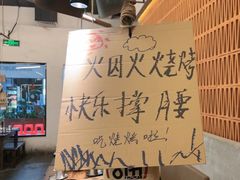 火囚火烧烤
快乐撑腰
吃烧烤啦!